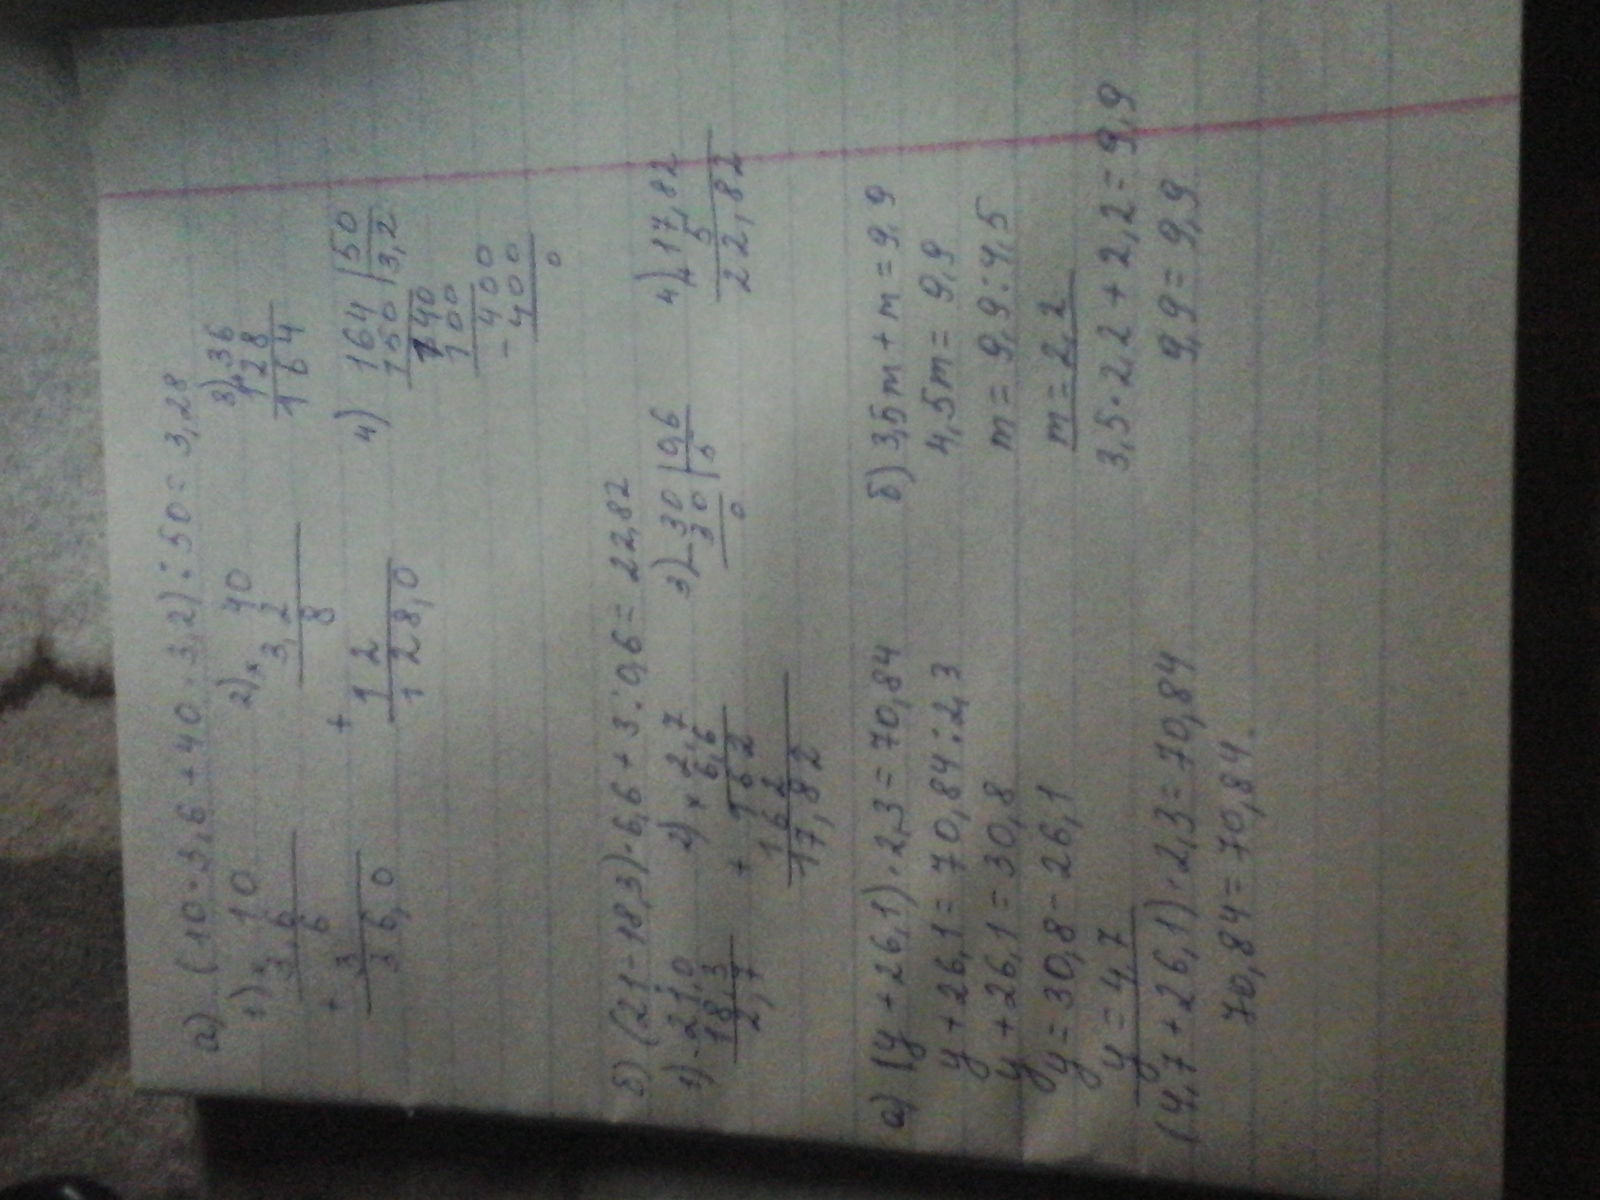 а) (10·3,6+40·3,2):50=3,28
1) × 10
3,6
6
+
3
36,0
2) × 40
3,2
8
+
12
128,0
3) + 36
128
164
4) 164 | 50
150 | 3,2
140
100
- 400
400
0
б) (21-18,3)·6,6+3:0,6=22,82
1) - 21,0
18,3
2,7
2) × 2,7
6,6
+ 162
162
17,82
3) - 30 | 0,6
30 | 5
0
4) + 17,82
5
22,82
а) (y+26,1)·2,3=70,84
y+26,1=70,84:2,3
y+26,1=30,8
y=30,8-26,1
y=4,7
(4,7+26,1)·2,3=70,84
70,84=70,84.
б) 3,5m+m=9,9
4,5m=9,9
m=9,9:4,5
m=2,2
3,5·2,2+2,2=9,9
9,9=9,9